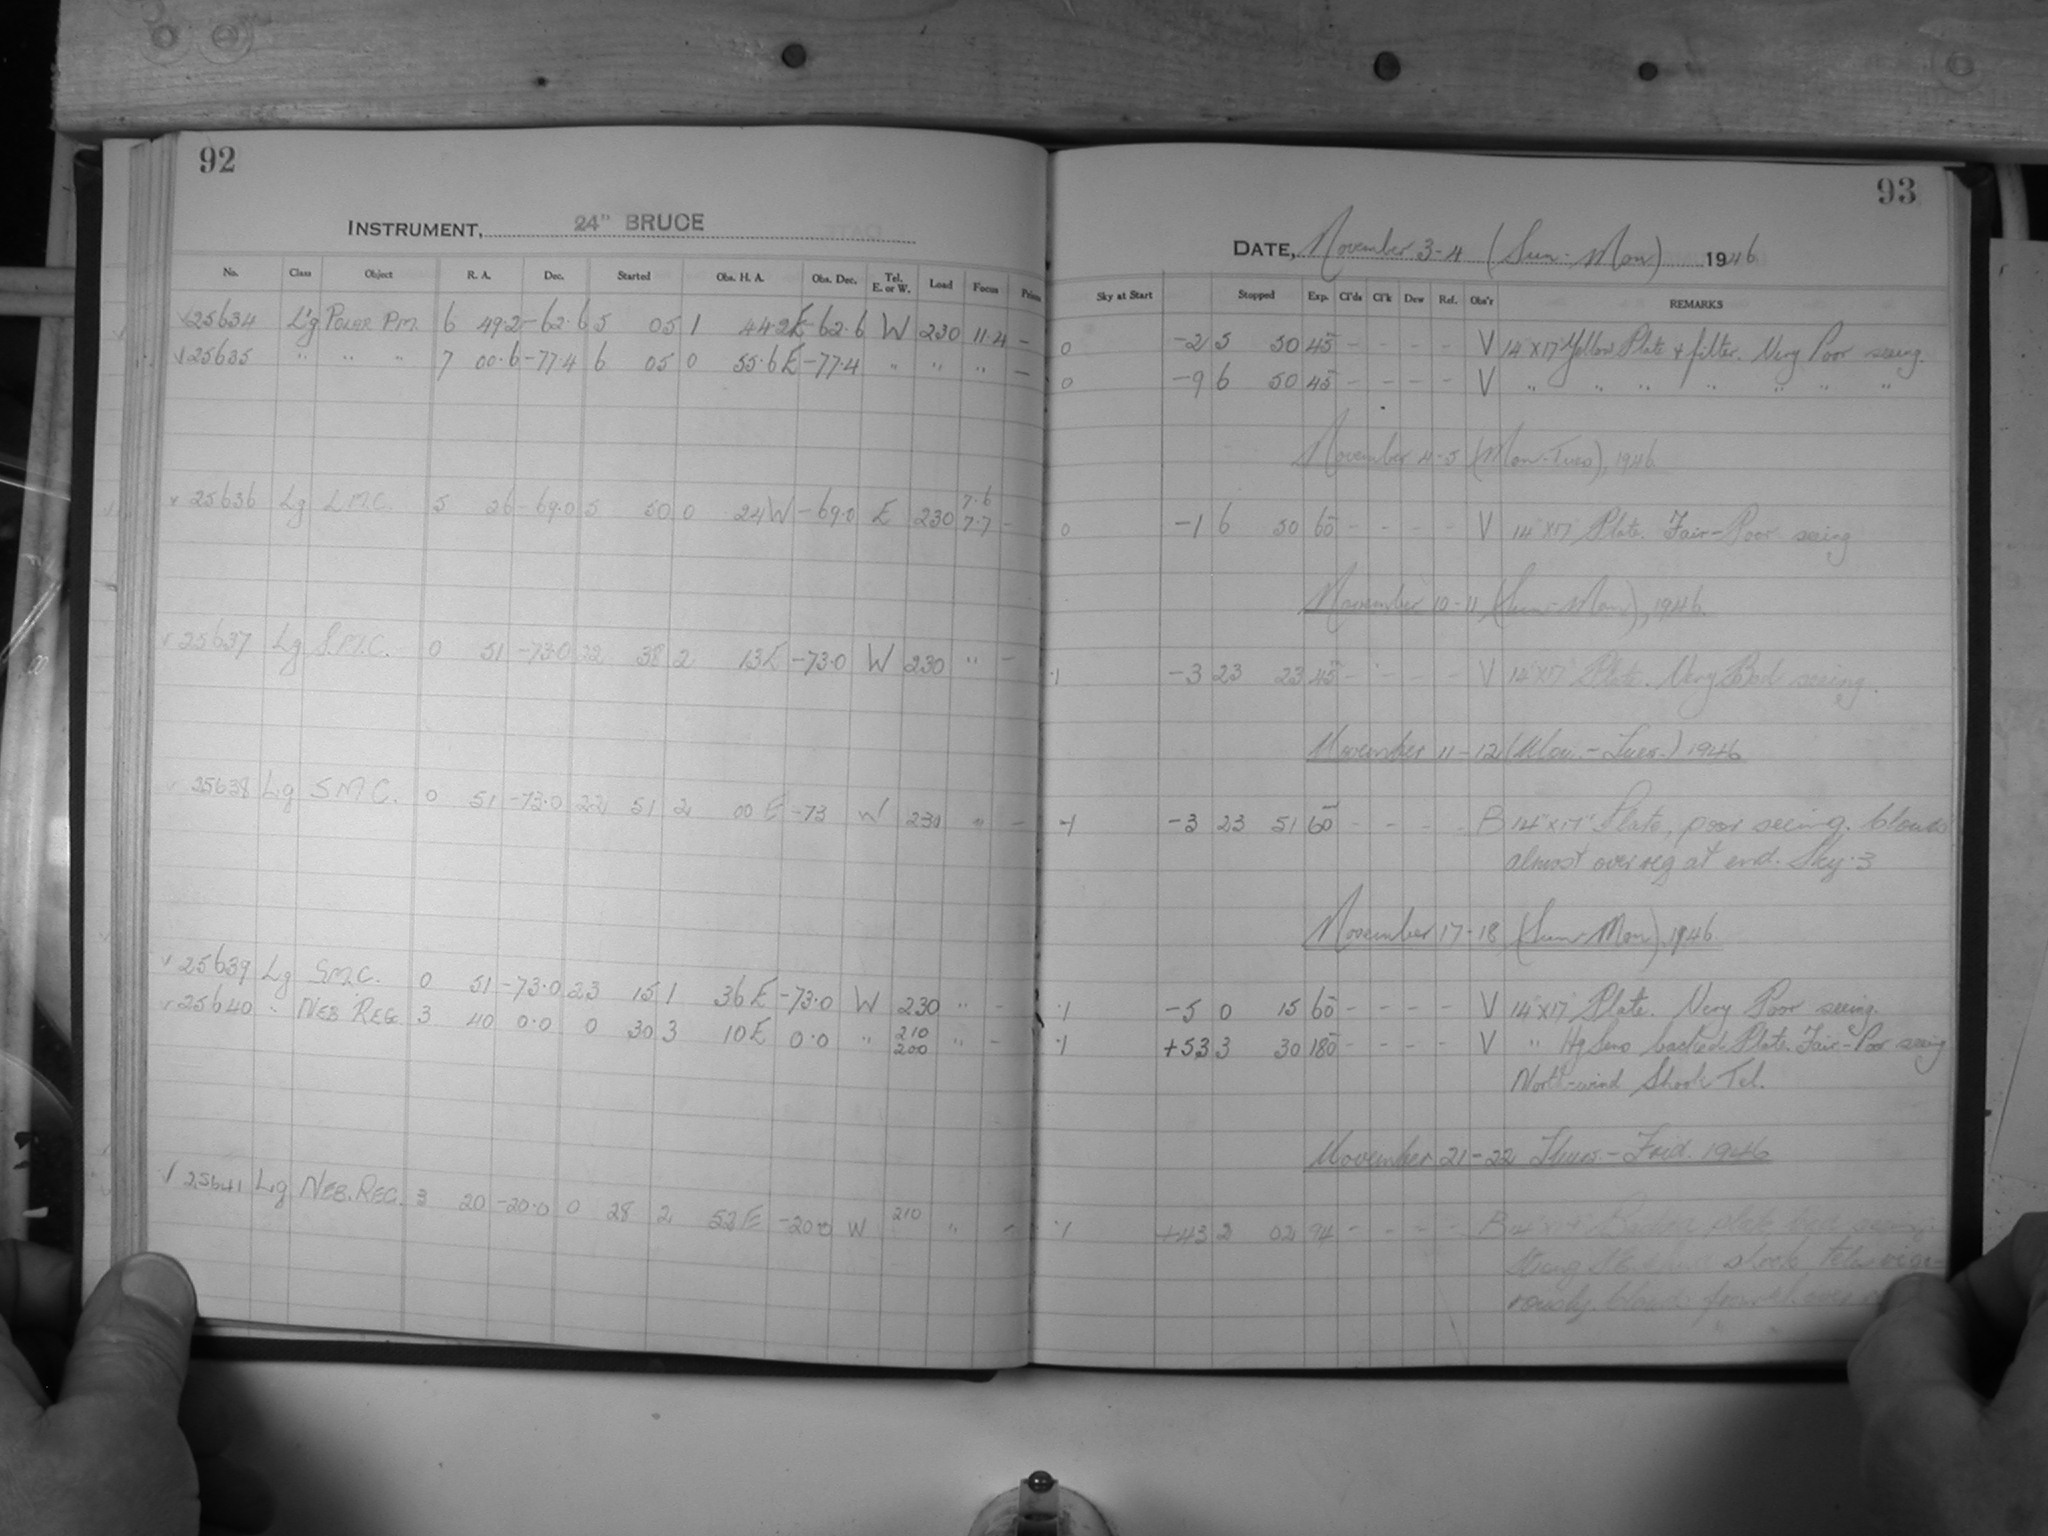 92
INSTRUMENT, 24" BRUCE
No. Class Object R. A. Dec. Started Obs. H. A. Obs. Dec. Tel. E. or W. Load Focus Prism
√25634 Lg POLAR P.M. 6 49.2 -62.6 5 05 1 44.2E -62.6 W 230 11.4 -
√25635 " " " 7 00.6 -77.4 6 05 0 55.6E -77.4 " " " -
25636 Lg L.M.C. 5 26 -69.0 5 50 0 24W -69.0 E 230 7.6 7.7 -
√25637 Lg S.M.C. 0 51 -73.0 22 38 2 13E -73.0 W 230 " -
√25638 Lg S.M.C. 0 51 -73.0 22 51 2 00E -73 W 230 " -
√25639 Lg S.M.C. 0 51 -73.0 23 15 1 36E -73.0 W 230 " -
√25640 " NEB. REG. 3 40 0.0 0 30 3 10E 0.0 " 210 200 " -
√25641 Lg NEB. REG. 3 20 -20.0 0 28 2 52E -20.0 W 210 " -
93
DATE, November 3-4 (Sun-Mon) 1946
Sky at Start Stopped Exp. Cl'ds Cl'k Dew Ref. Obs'r REMARKS
0 -2 5 50 45 - - - - V 14"X17" Yellow Plate & filter. Very Poor seeing.
0 -9 6 50 45 - - - - V " " " " " " "
November 4-5 (Mon-Tues), 1946.
0 -1 6 50 60 - - - - V 14"X17" Plate. Fair-Poor seeing
November 10-11 (Sun-Mon), 1946.
.1 -3 23 23 45 - - - - V 14"X17" Plate. Very Bad seeing.
November 11-12 (Mon.-Tues.) 1946
-1 -3 23 51 60 - - - - B 14"x17" Plate, poor seeing. Clouds
almost over reg at end. Sky .3
November 17-18 (Sun-Mon), 1946.
.1 -5 0 15 60 - - - - V 14"X17" Plate. Very Poor seeing.
.1 +53 3 30 180 - - - - V " Hg Sens backed Plate. Fair-Poor seeing
North-wind Shook Tel.
November 21-22 Thurs-Frid. 1946
.1 +43 2 02 94 - - - - B 14"x17" plate, bad seeing.
Strong shook Tel. vigo-
rously. Clouds